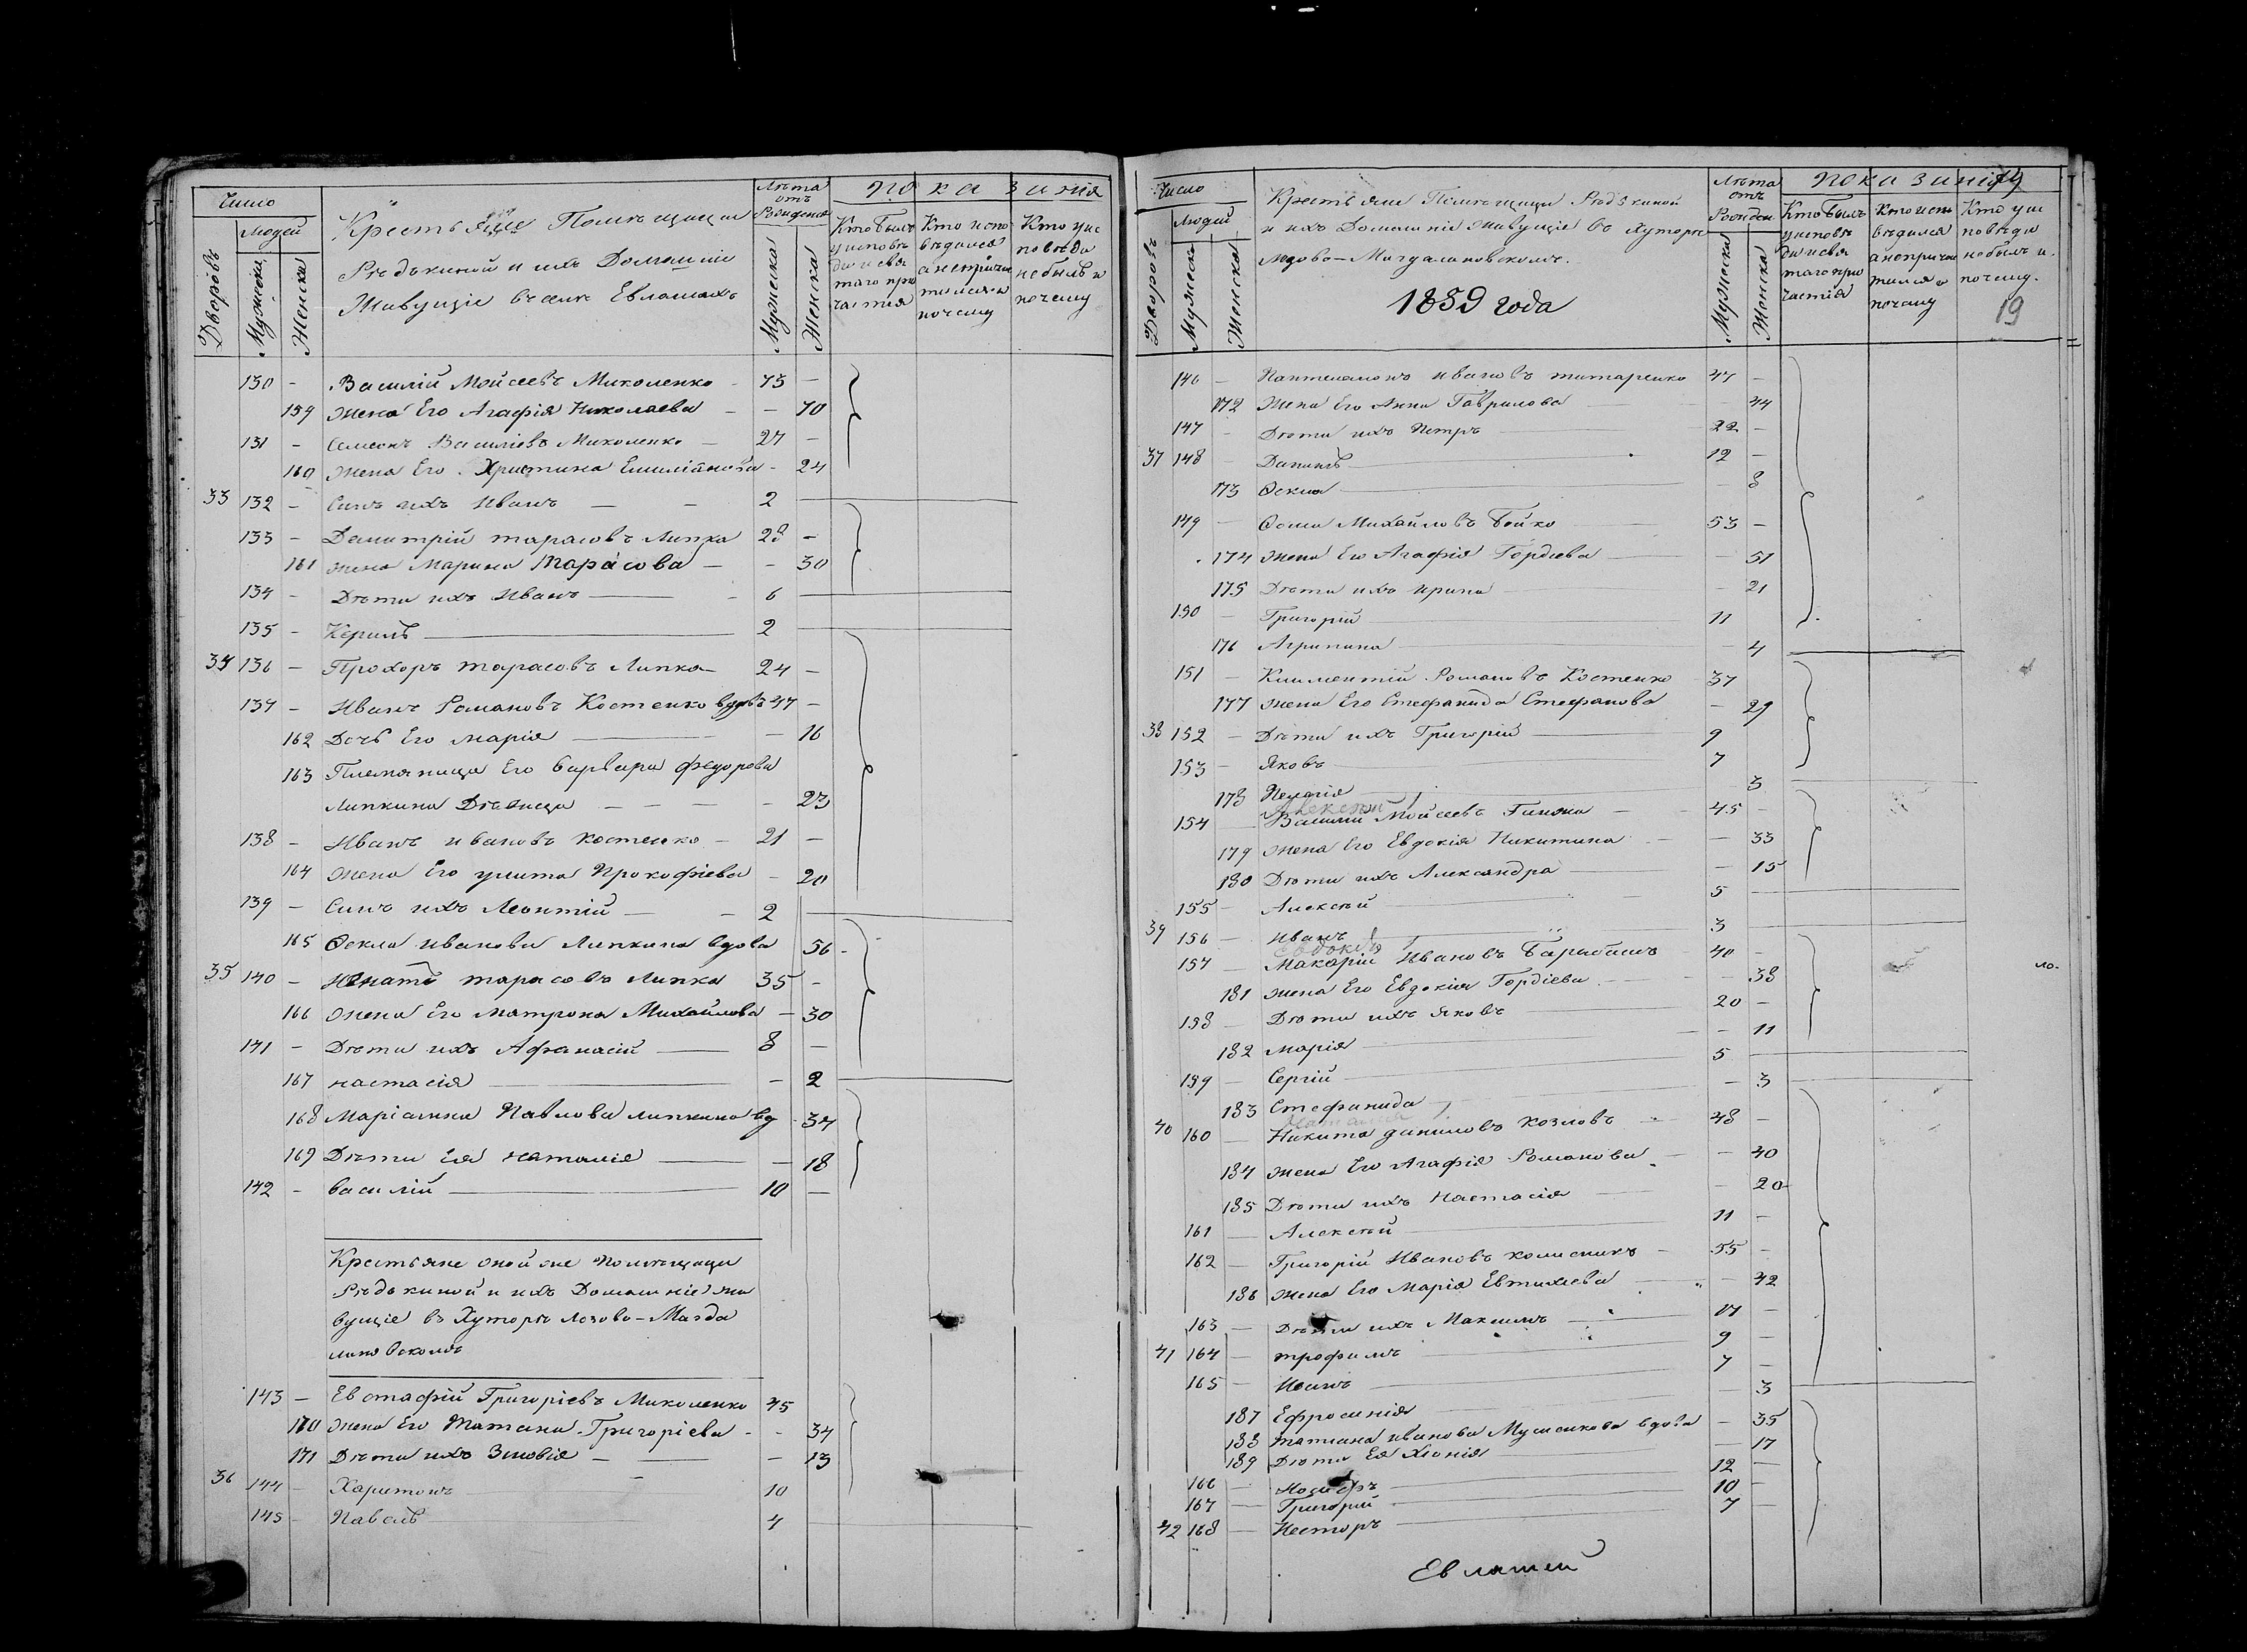 Число
Людей
Дворовъ
Мужеска
Женска
Крестьяне Помѣщицы
Рѣдькиной и ихъ Домашніе
Живущіе въ селѣ Евлашахъ
Лѣта
отъ
Рожденія
Мужеска
Женска
Показанія
Кто былъ
у исповѣ
ди и свя
таго при
частія
Кто испо
вѣдался
а непричас
тился и
почему
Кто у ис
повѣди
не былъ и
почему
130 - Василій Мойсеевъ Миколенко - 73 -
159 жена Его Агафія Николаева - - 70
131 - Семеонъ Василіевъ Миколенко - 27 -
160 жена Его Христина Емиліанова - 24
33 132 - Сынъ ихъ Иванъ - - 2
133 - Димитрій тарасовъ Липка 28 -
161 жена Марина Тарасова - - 30
134 - Дѣти ихъ Иванъ - 6
135 - Керилъ 2
34 136 - Прохоръ тарасовъ Липка - 24 -
137 - Иванъ Романовъ Костенко вдовъ 47 -
162 Дочь Его марія - 16
163 Племянница Его Варвара Федорова
Липкина Дѣвица - - - - 23
138 - Иванъ ивановъ костенко - 21 -
164 жена Его улита Прокофіева - 20
139 - Сынъ ихъ Леонтій - - 2
165 Ѳекла иванова Липкина вдова 56 -
35 140 - Игнатъ тарасовъ Липка 35 -
166 жена Его матрона Михайлова - 30
141 - Дѣти ихъ Афанасій 8 -
167 настасія - 2
168 Маріанна Павлова липкина вд 34
169 Дѣти Ея наталія - 18
142 - василій 10 -
Крестьяне оной же помѣщицы
Рѣдькиной и ихъ Домашніе жи
вущіе въ Хуторѣ Лозово-Магда
линовскомъ
143 - Евстафій Григоріевъ Миколенко 45
170 жена Его Татіана Григоріева - - 34
171 Дѣти ихъ Зиновія - - 13
36 144 - Харитонъ 10
145 - Павелъ 4
Число
Людей
Дворовъ
Мужеска
Женска
Крестьяне Помѣщицы Рѣдькиной
и ихъ Домашніе живущіе въ хуторѣ
Лозово-Магдалиновскомъ.
1859 года
Лѣта
отъ
Рожден
Мужеска
Женска
Показанія
Кто былъ
у исповѣ
ди и свя
таго при
частія
Кто испо
вѣдался
а непричас
тился и
почему
Кто у ис
повѣди
небылъ и
почему.
19
146 - Пантелемонъ ивановъ титаренко 47 -
172 Жена Его Анна Гаврилова 44
147 - Дѣти ихъ Петръ 22 -
37 148 - Данилъ 12 -
173 Ѳекла - 8
149 - Ѳома Михайловъ Бойко 53 -
174 жена Его Агафія Гордіева - 51
175 Дѣти ихъ ирина - 21
150 - Григорій 11
176 Агрипина - 4
151 - Климентій Романовъ Костенко 37
177 жена Его Стефанида Стефанова - 29
38 152 - Дѣти ихъ Григорій 9
153 - Яковъ 7
178 Пелагія 3
Алексѣй
154 - Василій Мойсеевъ - 45 -
179 жена Его Евдокія Никитина - - 33
180 Дѣти ихъ Александра - 15
155 - Алексѣй 5
39 156 - Иванъ 3
Евдокія
157 - Макарій Ивановъ Барабашъ 40 -
181 жена Его Евдокія Гордіева - 38
158 - Дѣти ихъ Яковъ 20 -
182 Марія - 11
159 - Сергій 5
183 Стефанида - 3
40 160 - Никита даниловъ козловъ 48 -
184 жена Его Агафія Романова - 40
185 Дѣти ихъ Настасія - 20
161 - Алексѣй 11 -
162 - Григорій Ивановъ колисникъ - 55 -
186 жена Его Марія Евтихіева - 42
163 - Дѣти ихъ Максимъ 17 -
41 164 - трофимъ 9 -
165 - Иванъ 7 -
187 Ефросинія 3
188 татіана иванова Мусіикова вдова - 35
189 Дѣти Ея Хіонія - 17
166 - Иосифъ 12 -
167 - Григорій 10 -
42 168 - Несторъ 7 -
Евлашей